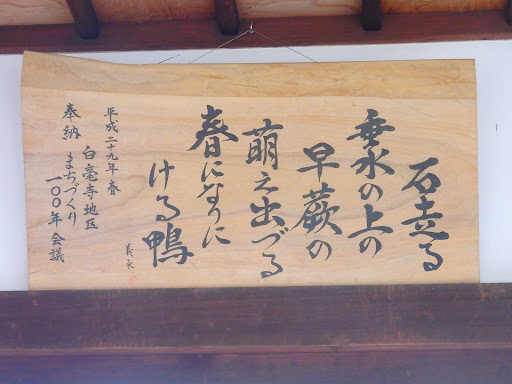 石走る
垂水の上の
早蕨の
萌え出づる
春になりに
ける鴨
義永
平成二十九年春
奉納 白毫寺地区
まちづくり
一〇〇年会議